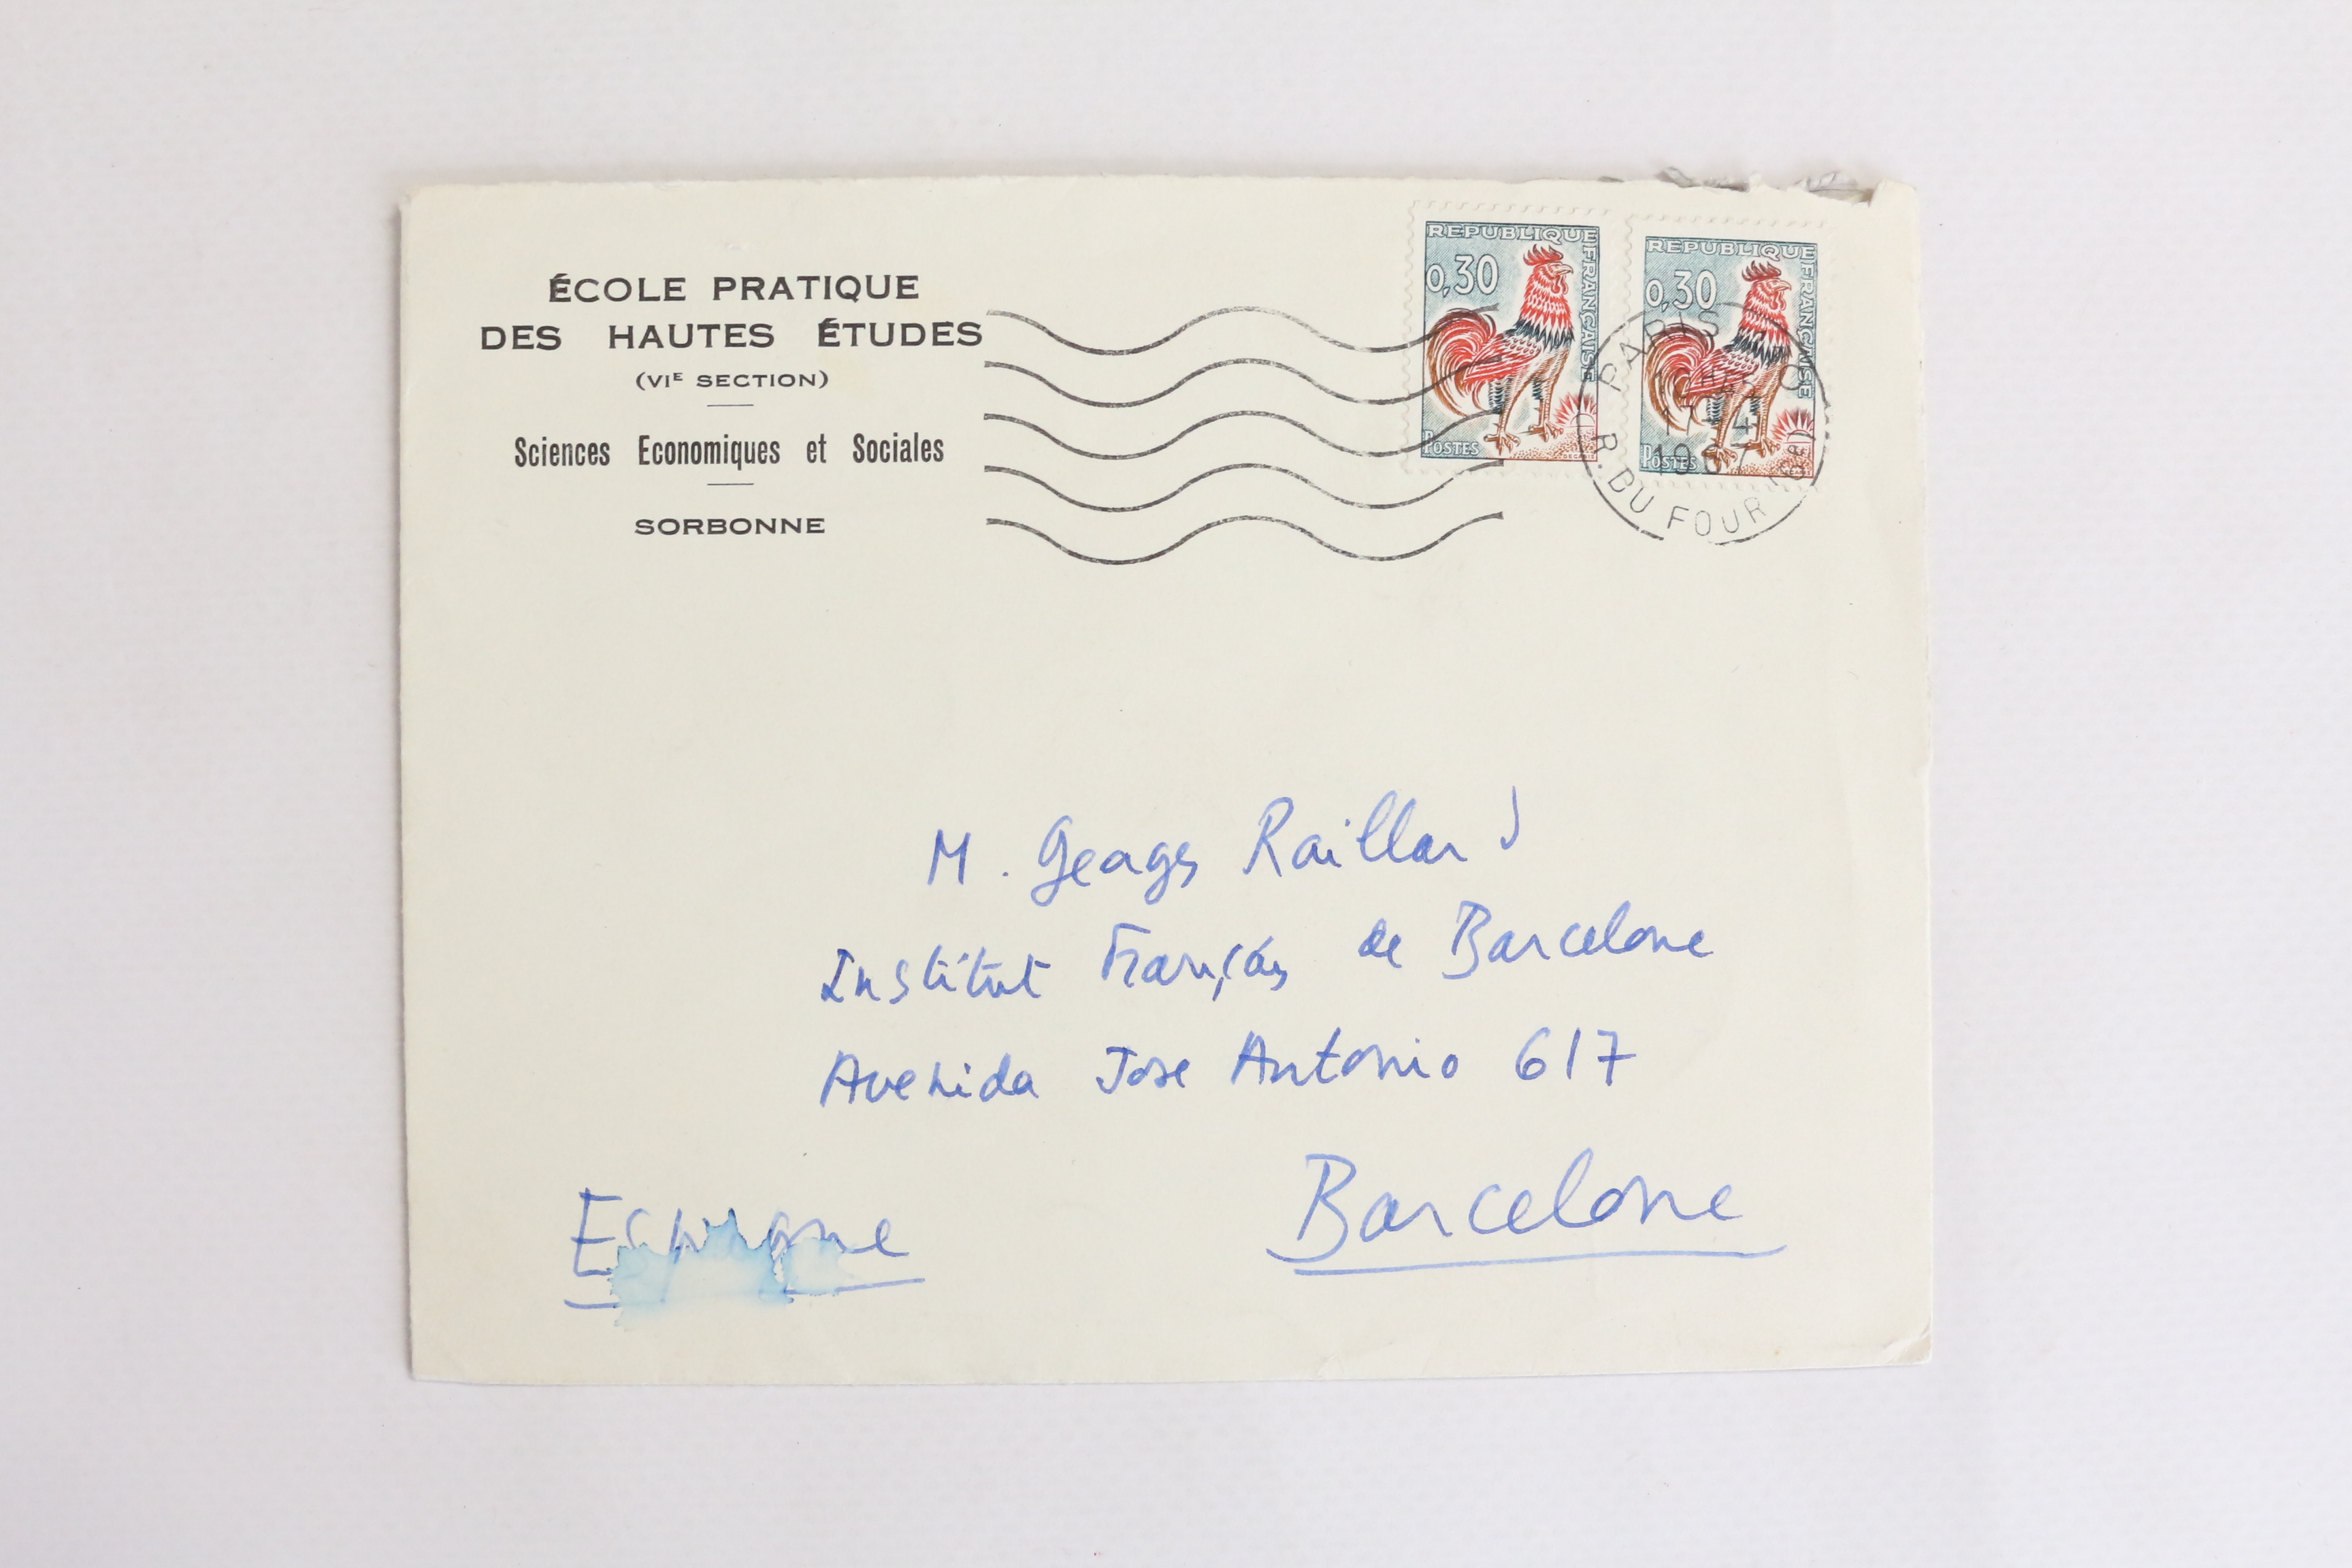 ÉCOLE PRATIQUE
DES HAUTES ÉTUDES
(VIE SECTION)
Sciences Economiques et Sociales
SORBONNE
REPUBLIQUE FRANÇAISE
0,30
POSTES
REPUBLIQUE FRANÇAISE
0,30
POSTES
PARIS
R. DU FOUR (6e)
M. Georges Raillard
Institut Français de Barcelone
Avenida Jose Antonio 617
Barcelone
Espagne